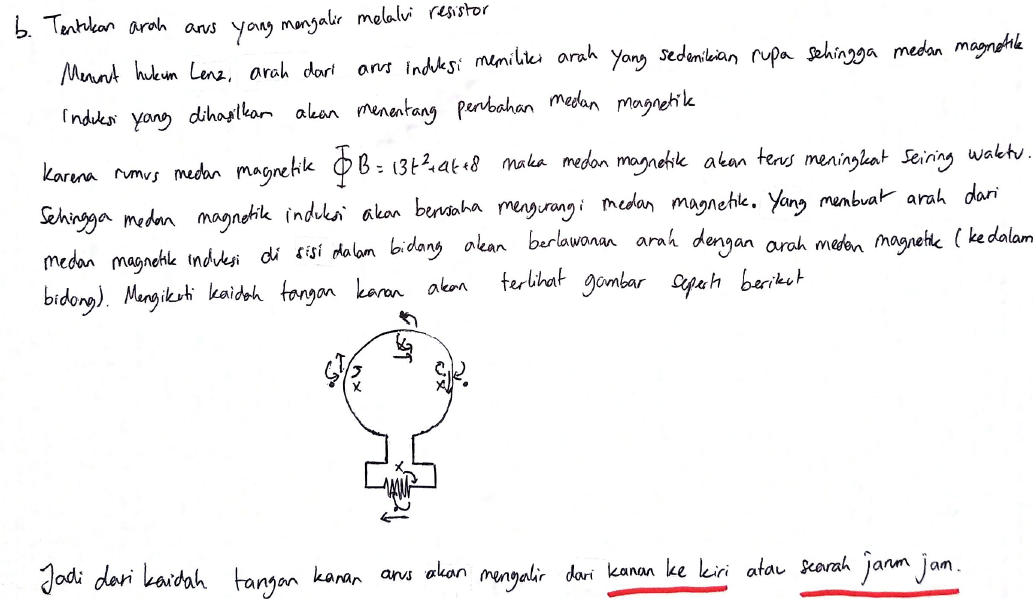 b. Tentukan arah arus yang mengalir melalui resistor
Menurut hukum Lenz, arah dari arus induksi memiliki arah yang sedemikian rupa sehingga medan magnetik
Induksi yang dihasilkan akan menentang perubahan medan magnetik
Karena rumus medan magnetik ΦB = 13t²+at+8 maka medan magnetik akan terus meningkat seiring waktu.
Sehingga medan magnetik induksi akan berusaha mengurangi medan magnetik. Yang membuat arah dari
medan magnetik induksi di sisi dalam bidang akan berlawanan arah dengan arah medan magnetik (kedalam
bidang). Mengikuti kaidah tangan kanan akan terlihat gambar seperti berikut
x x
x
Jadi dari kaidah tangan kanan arus akan mengalir dari kanan ke kiri atau searah jarum jam.